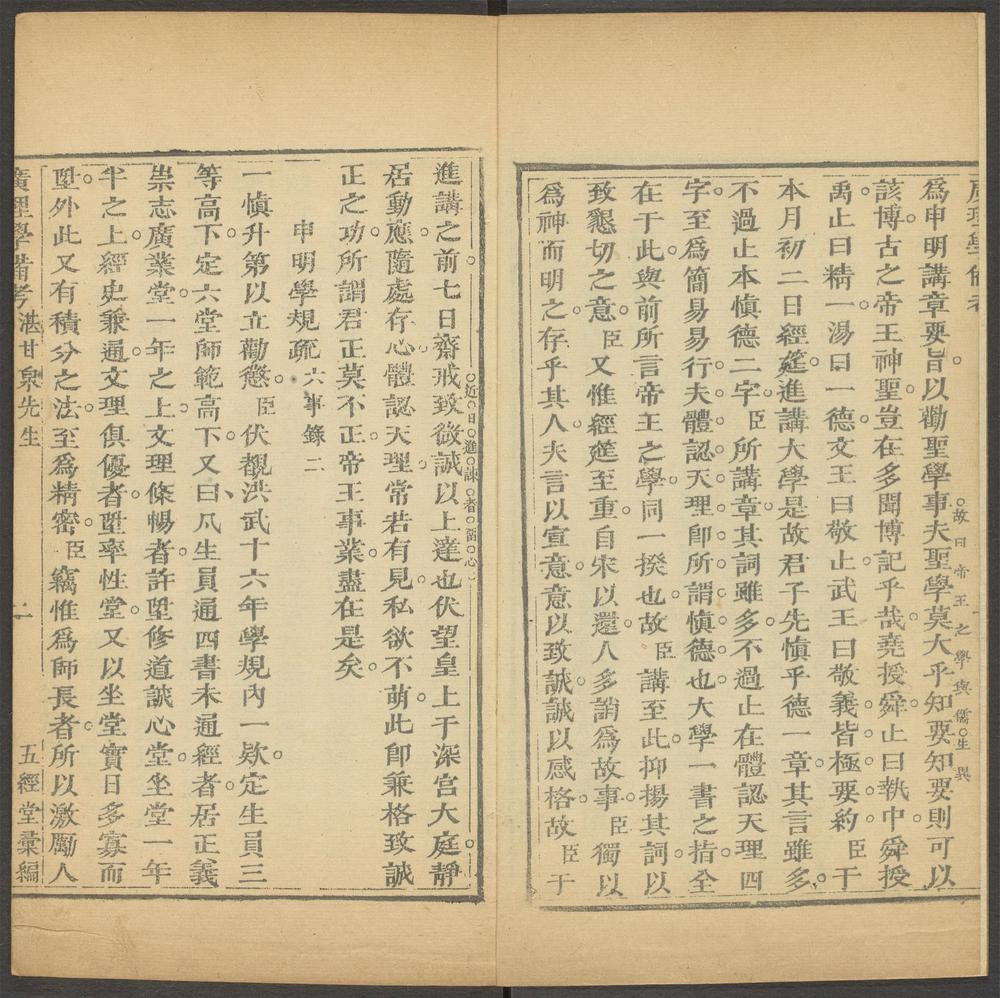 廣理學備考
爲申明講章要旨以勸聖學事夫聖學莫大乎知要知要則可以
故曰帝王之學與儒生異
該博古之帝王神聖豈在多聞博記乎哉堯授舜止曰執中舜授
禹止曰精一湯曰一德文王曰敬止武王曰敬義皆極要約臣于
本月初二日經筵進講大學是故君子先慎乎德一章其言雖多
不過止本慎德二字臣所講章其詞雖多不過止在體認天理四
字至爲簡易易行夫體認天理卽所謂慎德也大學一書之指全
在于此與前所言帝王之學同一揆也故臣講至此抑揚其詞以
致懇切之意臣又惟經筵至重自宋以還人多誚爲故事臣獨以
爲神而明之存乎其人夫言以宣意意以致誠誠以感格故臣于
近日進諫者罱心
進講之前七日齋戒致微誠以上達也伏望皇上于深宮大庭靜
居動應隨處存心體認天理常若有見私欲不萌此卽兼格致誠
正之功所謂君正莫不正帝王事業盡在是矣
申明學規疏六事錄二
一慎升第以立勸懲臣伏覩洪武十六年學規內一欵定生員三
等高下定六堂師範高下又曰凡生員通四書未通經者居正義
崇志廣業堂一年之上文理條暢者許陞修道誠心堂坐堂一年
半之上經史兼通文理俱優者陞率性堂又以坐堂實日多寡而
陞外此又有積分之法至爲精密臣竊惟爲師長者所以激勵人
廣理學備考 湛甘泉先生 二 五經堂彙編